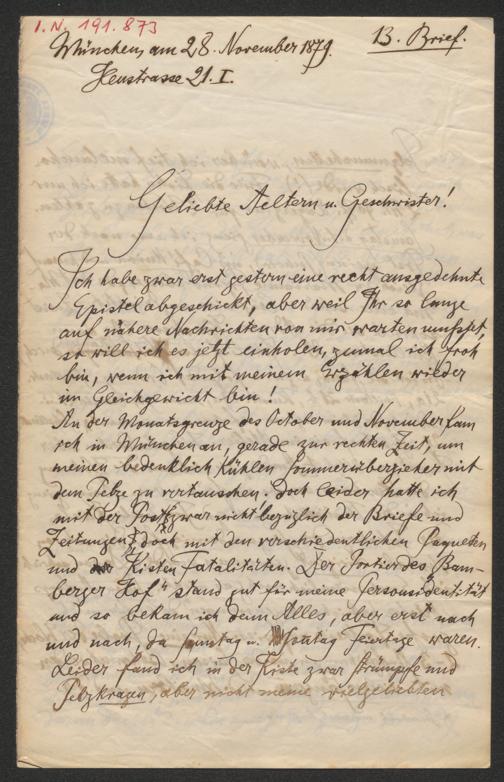 I.N. 191.873
13. Brief.
München, am 28. November 1879.
Heustrasse 21. I.
Geliebte Aeltern u. Geschwister!
Ich habe zwar erst gestern eine recht ausgedehnte
Epistel abgeschickt, aber weil Ihr so lange
auf nähere Nachrichten von mir warten mußtet,
so will ich es jetzt einholen, zumal ich froh
bin, wenn ich mit meinem Erzählen wieder
im Gleichgewicht bin!
An der Monatsgrenze des October und November kam
ich in München an, gerade zur rechten Zeit, um
meinen bedenklich kühlen Sommerüberzieher mit
dem Pelze zu vertauschen. Doch leider hatte ich
mit der Post zwar nicht bezüglich der Briefe und
Zeitungen, doch mit den verschiedentlichen Paqueten
und Kisten Fatalitäten. Der Portier des „Bam-
berger Hof" stand gut für meine Personsidentität
und so bekam ich denn Alles, aber erst nach
und nach, da Sonntag u. Montag Feiertage waren.
Leider fand ich in der Kiste zwar Strümpfe und
Pelzkragen, aber nicht meine vielgeliebten